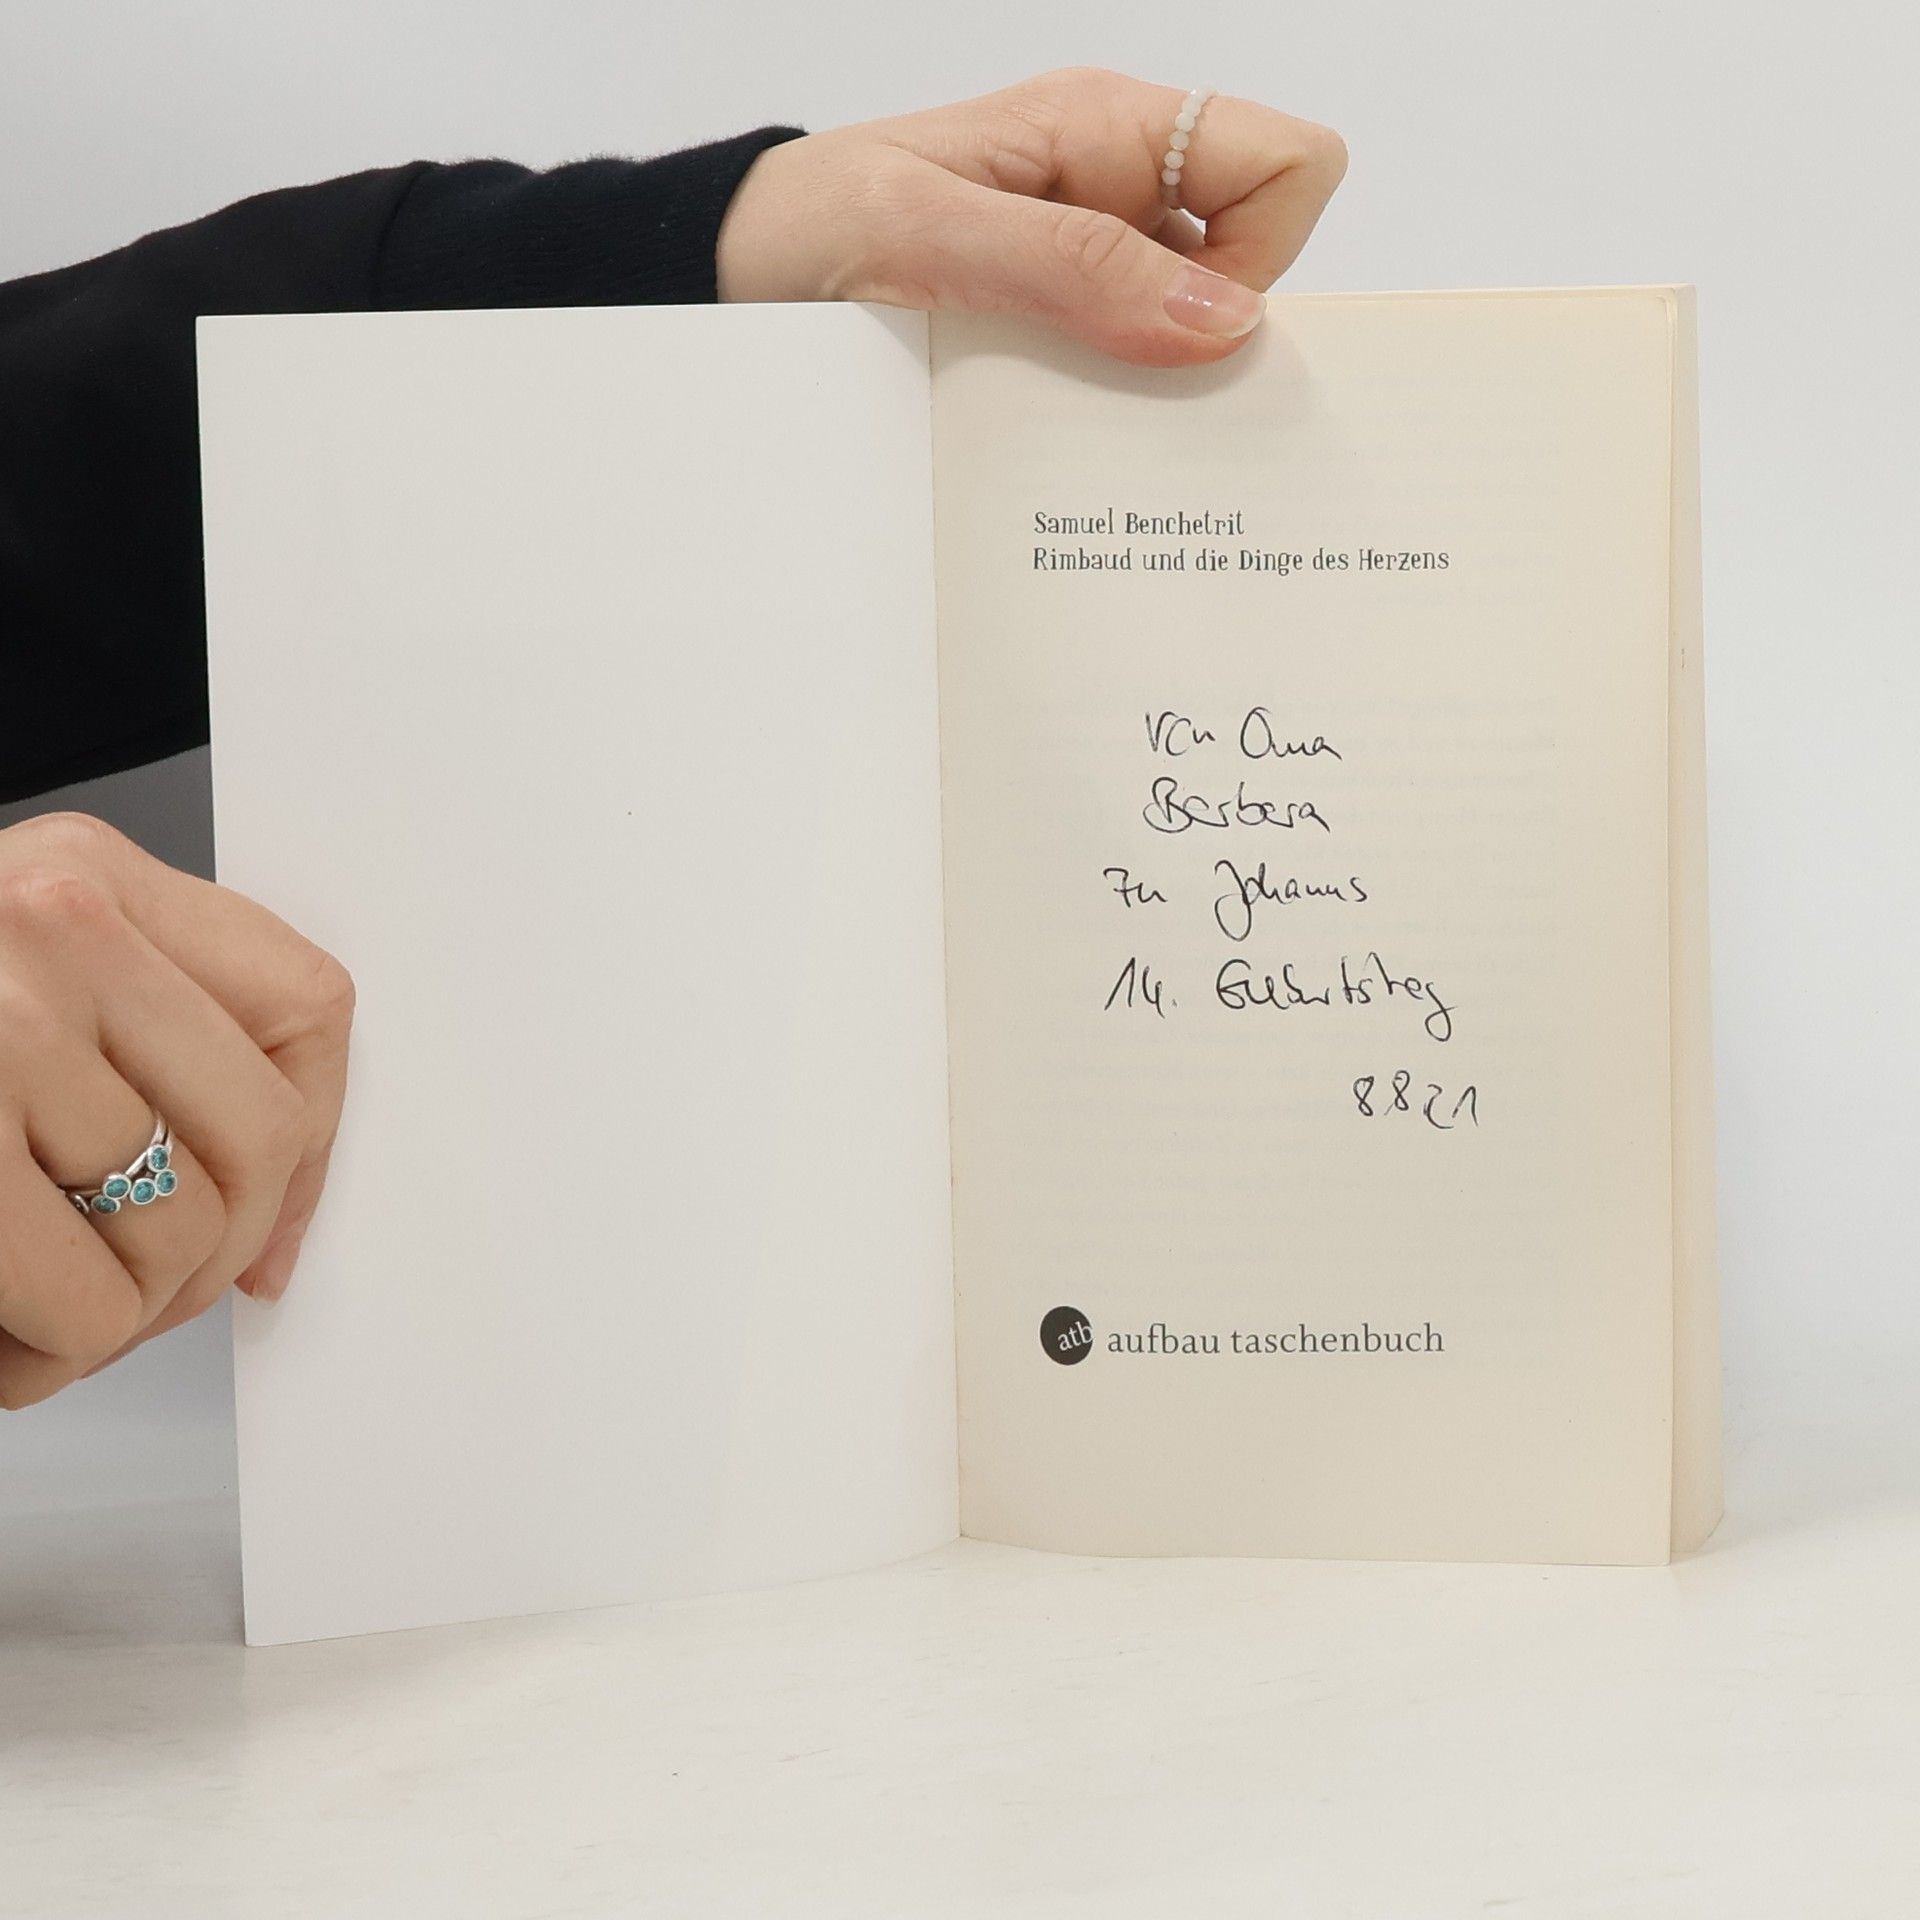 Samuel Benchetrit
Rimbaud und die Dinge des Herzens
Von Oma
Barbara
Zu Johanns
14. Geburtstag
8 8 21
atb aufbau taschenbuch